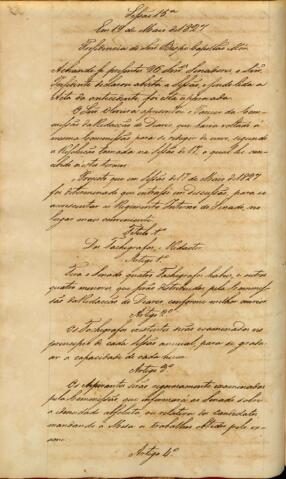 Sessão 15ª
Em 19 de Maio de 1827
Presidencia do Senr. Bispo Capellão Mór
Achando-se presentes 36 Senrs. Senadores, o Senr.
Presidente declarou aberta a Sessão, e sendo lida a
Acta da antecedente foi esta approvada.
O Senr. apresentou o Parecer da Com-
missão da Redacção do Diario que havia voltado á
mesma Commissão para o redigir de novo, segundo
a Resolução tomada na Sessão de 17, o qual he con-
cebido nestes termos.
Projecto que em Sessão de 17 de Maio de 1827
foi determinado que entrasse em discussão, para se
accrescentar ao Regimento Interno do Senado, no
lugar mais conveniente.
Titulo 1º
Dos Tachigrafos, e Redactor
Artigo 1º
Terá o Senado quatro Tachigrafos habeis, e outros
quatro menores que serão distribuidos pela Commis-
são da Redacção do Diario, conforme melhor convier.
Artigo 2º
Os Tachigrafos existentes serão examinados no
principio de cada Sessão annual, para se gradu-
ar a capacidade de cada hum.
Artigo 3º
Os Aspirantes serão rigorosamente examinados
pela Commissão que informará ao Senado sobre
a idoneidade absoluta, ou relativa do Candidato,
mandando á Mesa o Trabalho feito pelo ex-
ame.
Artigo 4º